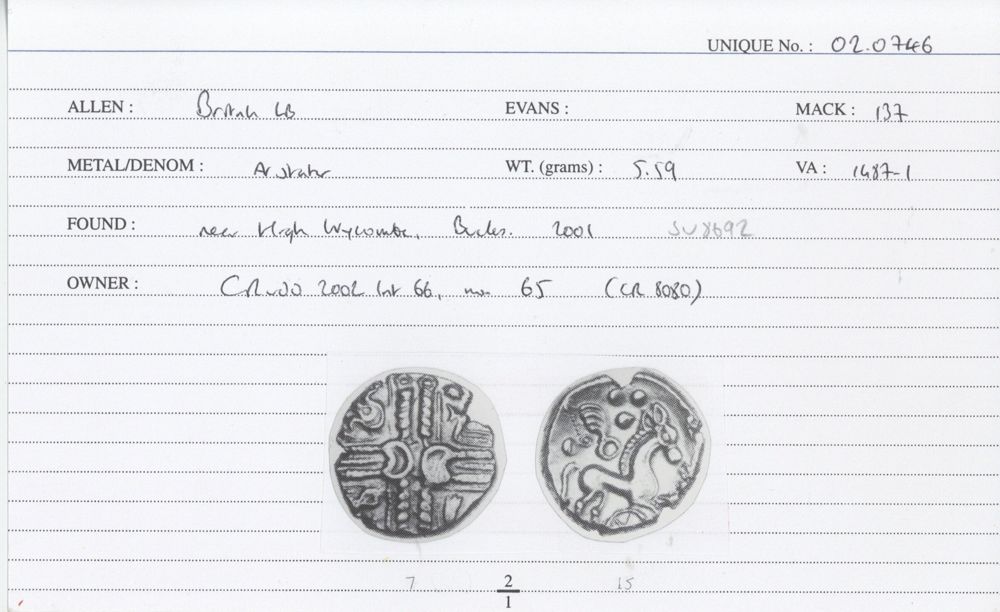 UNIQUE No. : 02.0746
ALLEN : British LB EVANS : MACK : 137
METAL/DENOM : AV stater WT. (grams) : 5.59 VA : 1487-1
FOUND : near High Wycombe, Bucks. 2001 SU8692
OWNER : 2002 list 66, no. 65 (CR 8080)
7 2/1 15